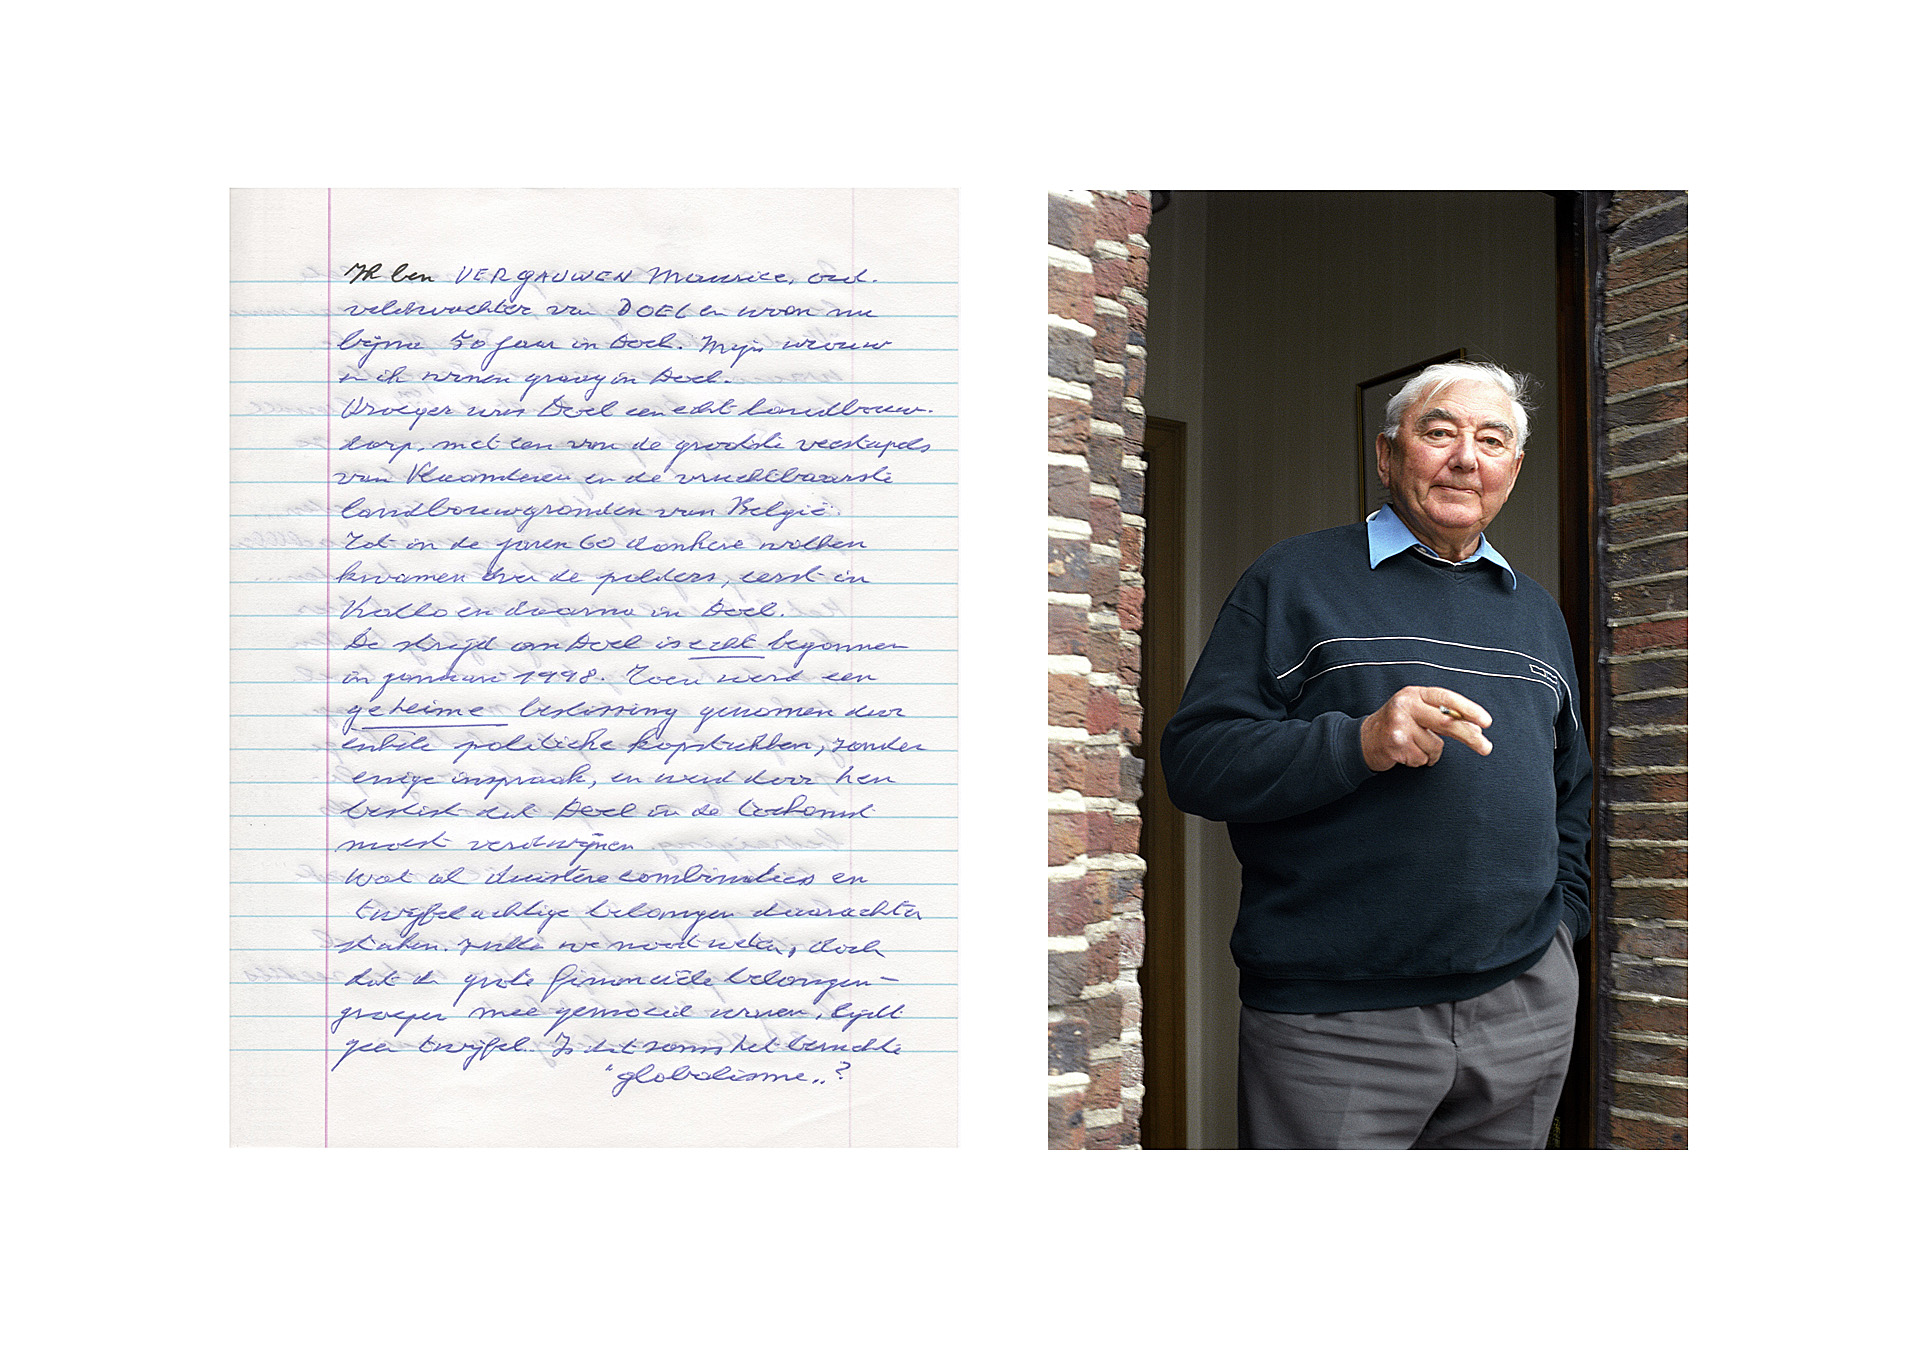 Ik ben VERGAUWEN Maurice, oud.
veldwachter van DOEL en woon nu
bijna 50 jaar in Doel. Mijn vrouw
en ik wonen graag in Doel.
Vroeger was Doel een echt landbouw-
dorp, met een van de grootste veestapels
van Vlaanderen en de vruchtbaarste
landbouwgronden van België.
Tot in de jaren 60 donkere wolken
kwamen over de polders, eerst in
Kallo en daarna in Doel.
De strijd om Doel is echt begonnen
in januari 1998. Toen werd een
geheime beslissing genomen door
enkele politieke kopstukken, zonder
enige inspraak, en werd door hen
beslist dat Doel in de toekomst
moest verdwijnen.
Wat al duistere combinaties en
twijfelachtige belangen daarachter
staken. zullen we nooit weten, doch
dat de grote financiële belangen-
groepen mee gemoeid waren, lijdt
geen twijfel. Is dat soms het beruchte
"globalisme„?